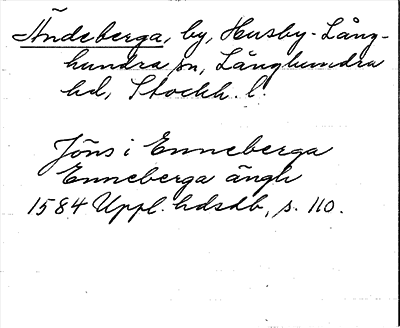 Ändeberga, by, Husby-Lång-
hundra sn, Långhundra
hd, Stockh. l.
Jöns i Enneberga
Enneberga ängh
1584 Uppl. hdsdb, s. 110.